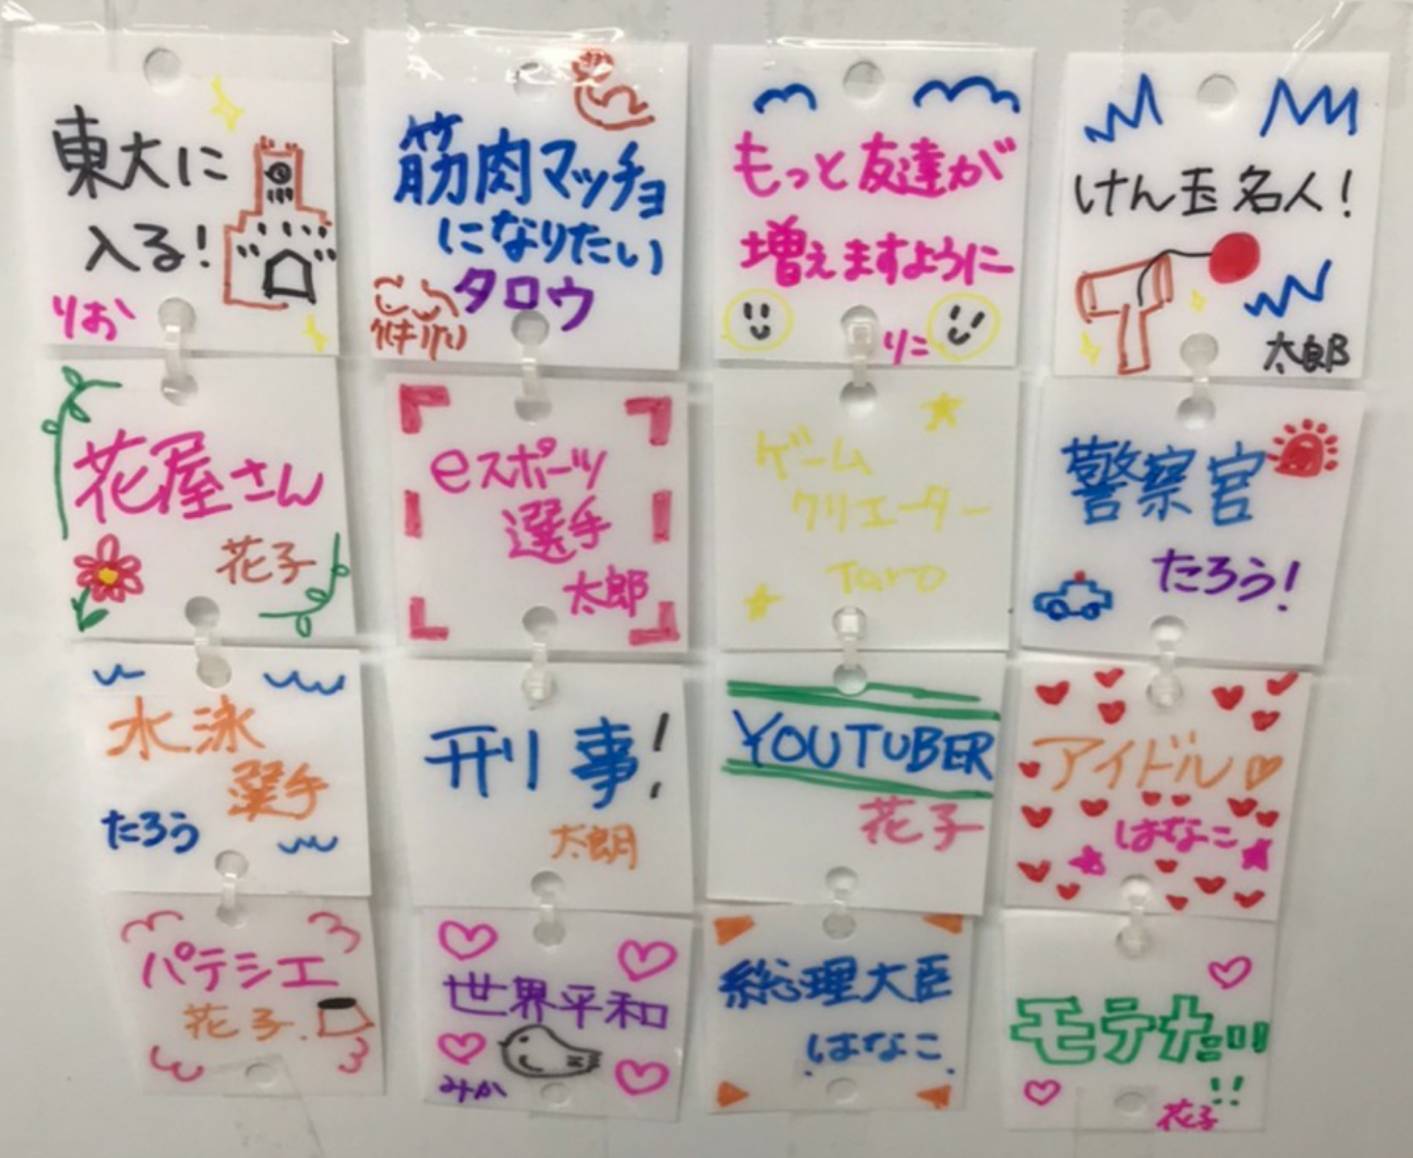 東大に
入る!
りお
筋肉マッチョ
になりたい
タロウ
もっと友達が
増えますように
りこ
けん玉名人!
太郎
花屋さん
花子
eスポーツ
選手
太郎
ゲーム
クリエーター
Taro
警察官
たろう!
水泳
選手
たろう
刑事!
太朗
YOUTUBER
花子
アイドル
はなこ
パテシエ
花子.
世界平和
みか
総理大臣
はなこ
モテたい!!
花子